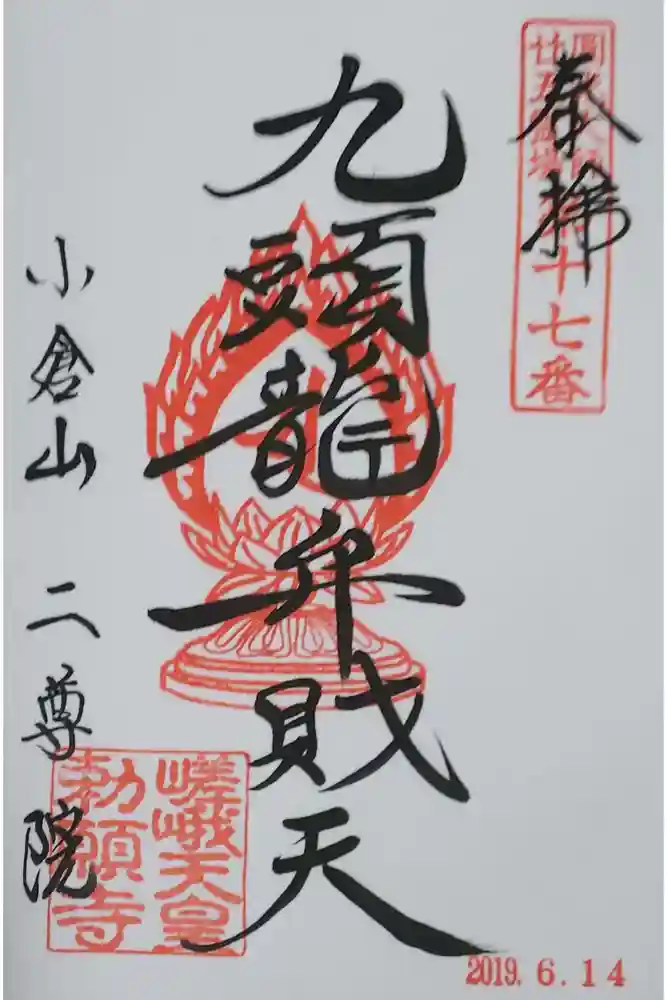 奉拝
圓光大師
廿五霊場
第十七番
九頭龍弁財天
小倉山 二尊院
嵯峨天皇
勅願寺
2019.6.14